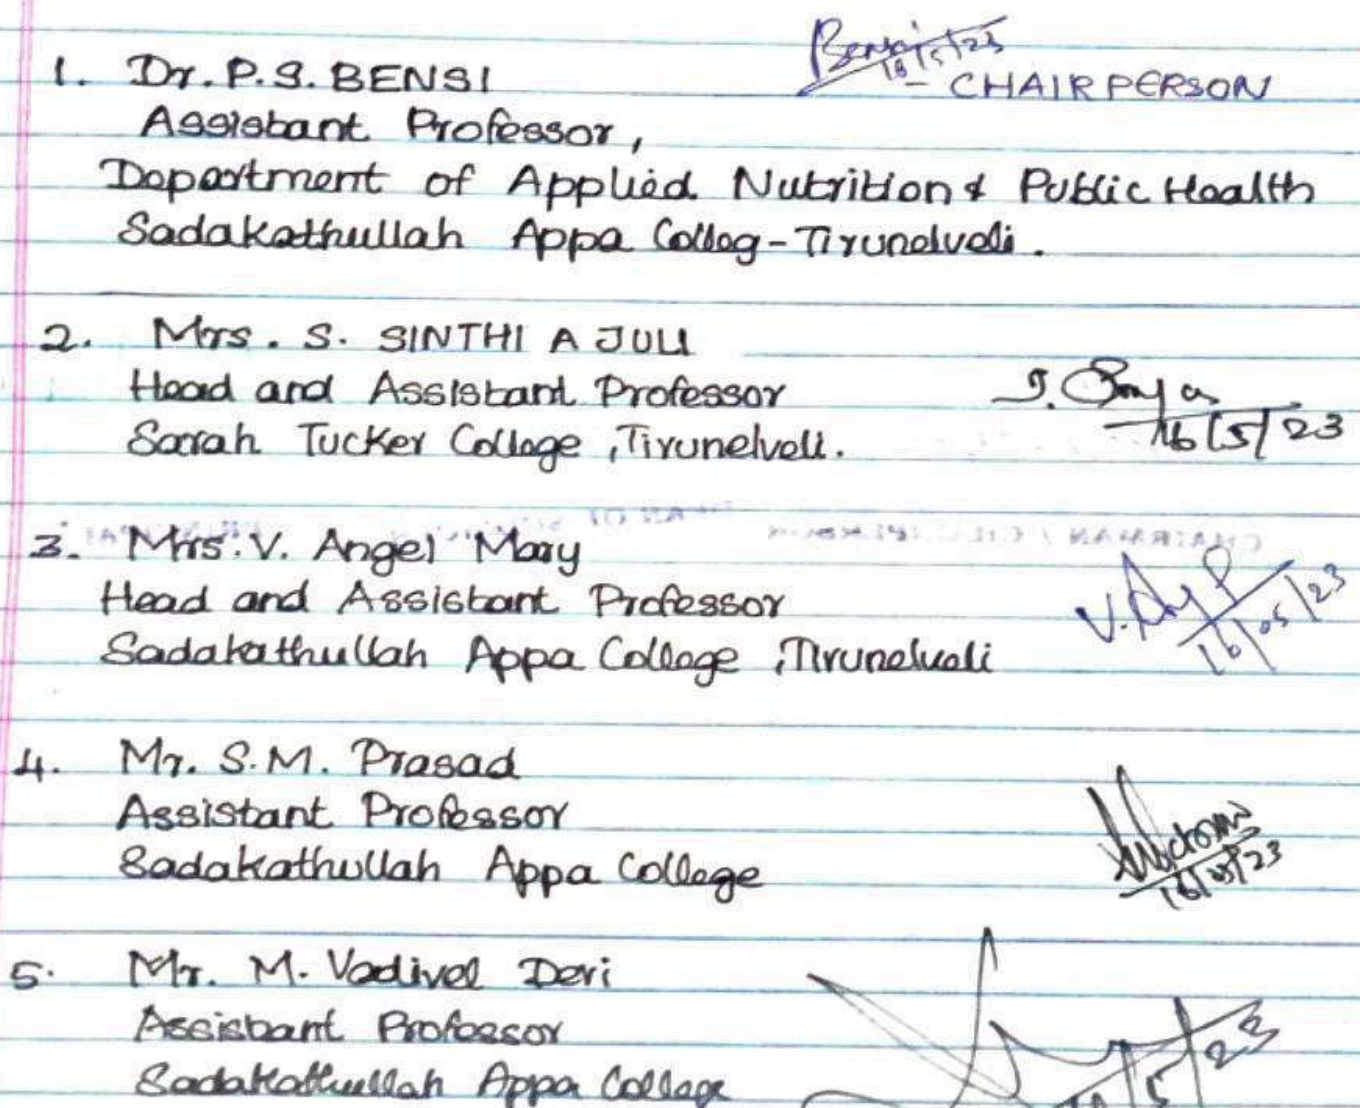 Bensi 18/5/23
1. Dr. P.S. BENSI - CHAIRPERSON
Assistant Professor,
Department of Applied Nutrition & Public Health
Sadakathullah Appa Colleg - Tirunelveli.
2. Mrs. S. SINTHI A JULI
Head and Assistant Professor
Sarah Tucker College, Tirunelveli.
16/5/23
3. Mrs. V. Angel Mary
Head and Assistant Professor
16/05/23
Sadakathullah Appa College, Tirunelveli
4. Mr. S.M. Prasad
Assistant Professor
Sadakathullah Appa College
16/05/23
5. Mr. M. Vadivel Devi
Assistant Professor
Sadakathullah Appa College